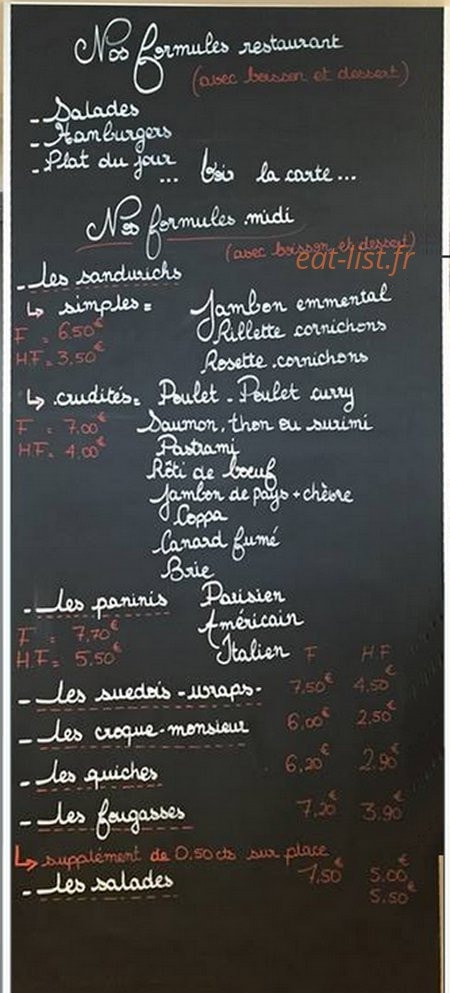 Nos formules restaurant
(avec boisson et dessert)
- Salades
- Hamburgers
- Plat du jour
... Voir la carte...
Nos formules midi
(avec boisson et dessert)
eat-list.fr
- Les sandwichs
↳ simples = Jambon emmental
F = 6,50€ Rillette cornichons
H.F = 3,50€ Rosette cornichons
↳ crudités = Poulet - Poulet curry
F = 7,00€ Saumon, thon ou surimi
H.F = 4,00€ Pastrami
Rôti de boeuf
Jambon de pays + chèvre
Coppa
Canard fumé
Brie
- Les paninis Parisien
F = 7,70€ Américain
H.F = 5,50€ Italien F H.F
- Les suedois - wraps - 7,50€ 4,50€
- Les croque-monsieur 6,00€ 2,50€
- Les quiches 6,20€ 2,90€
- Les fougasses 7,20€ 3,90€
↳ supplément de 0,50cts sur place
- Les salades 7,50€ 5,00€
5,50€